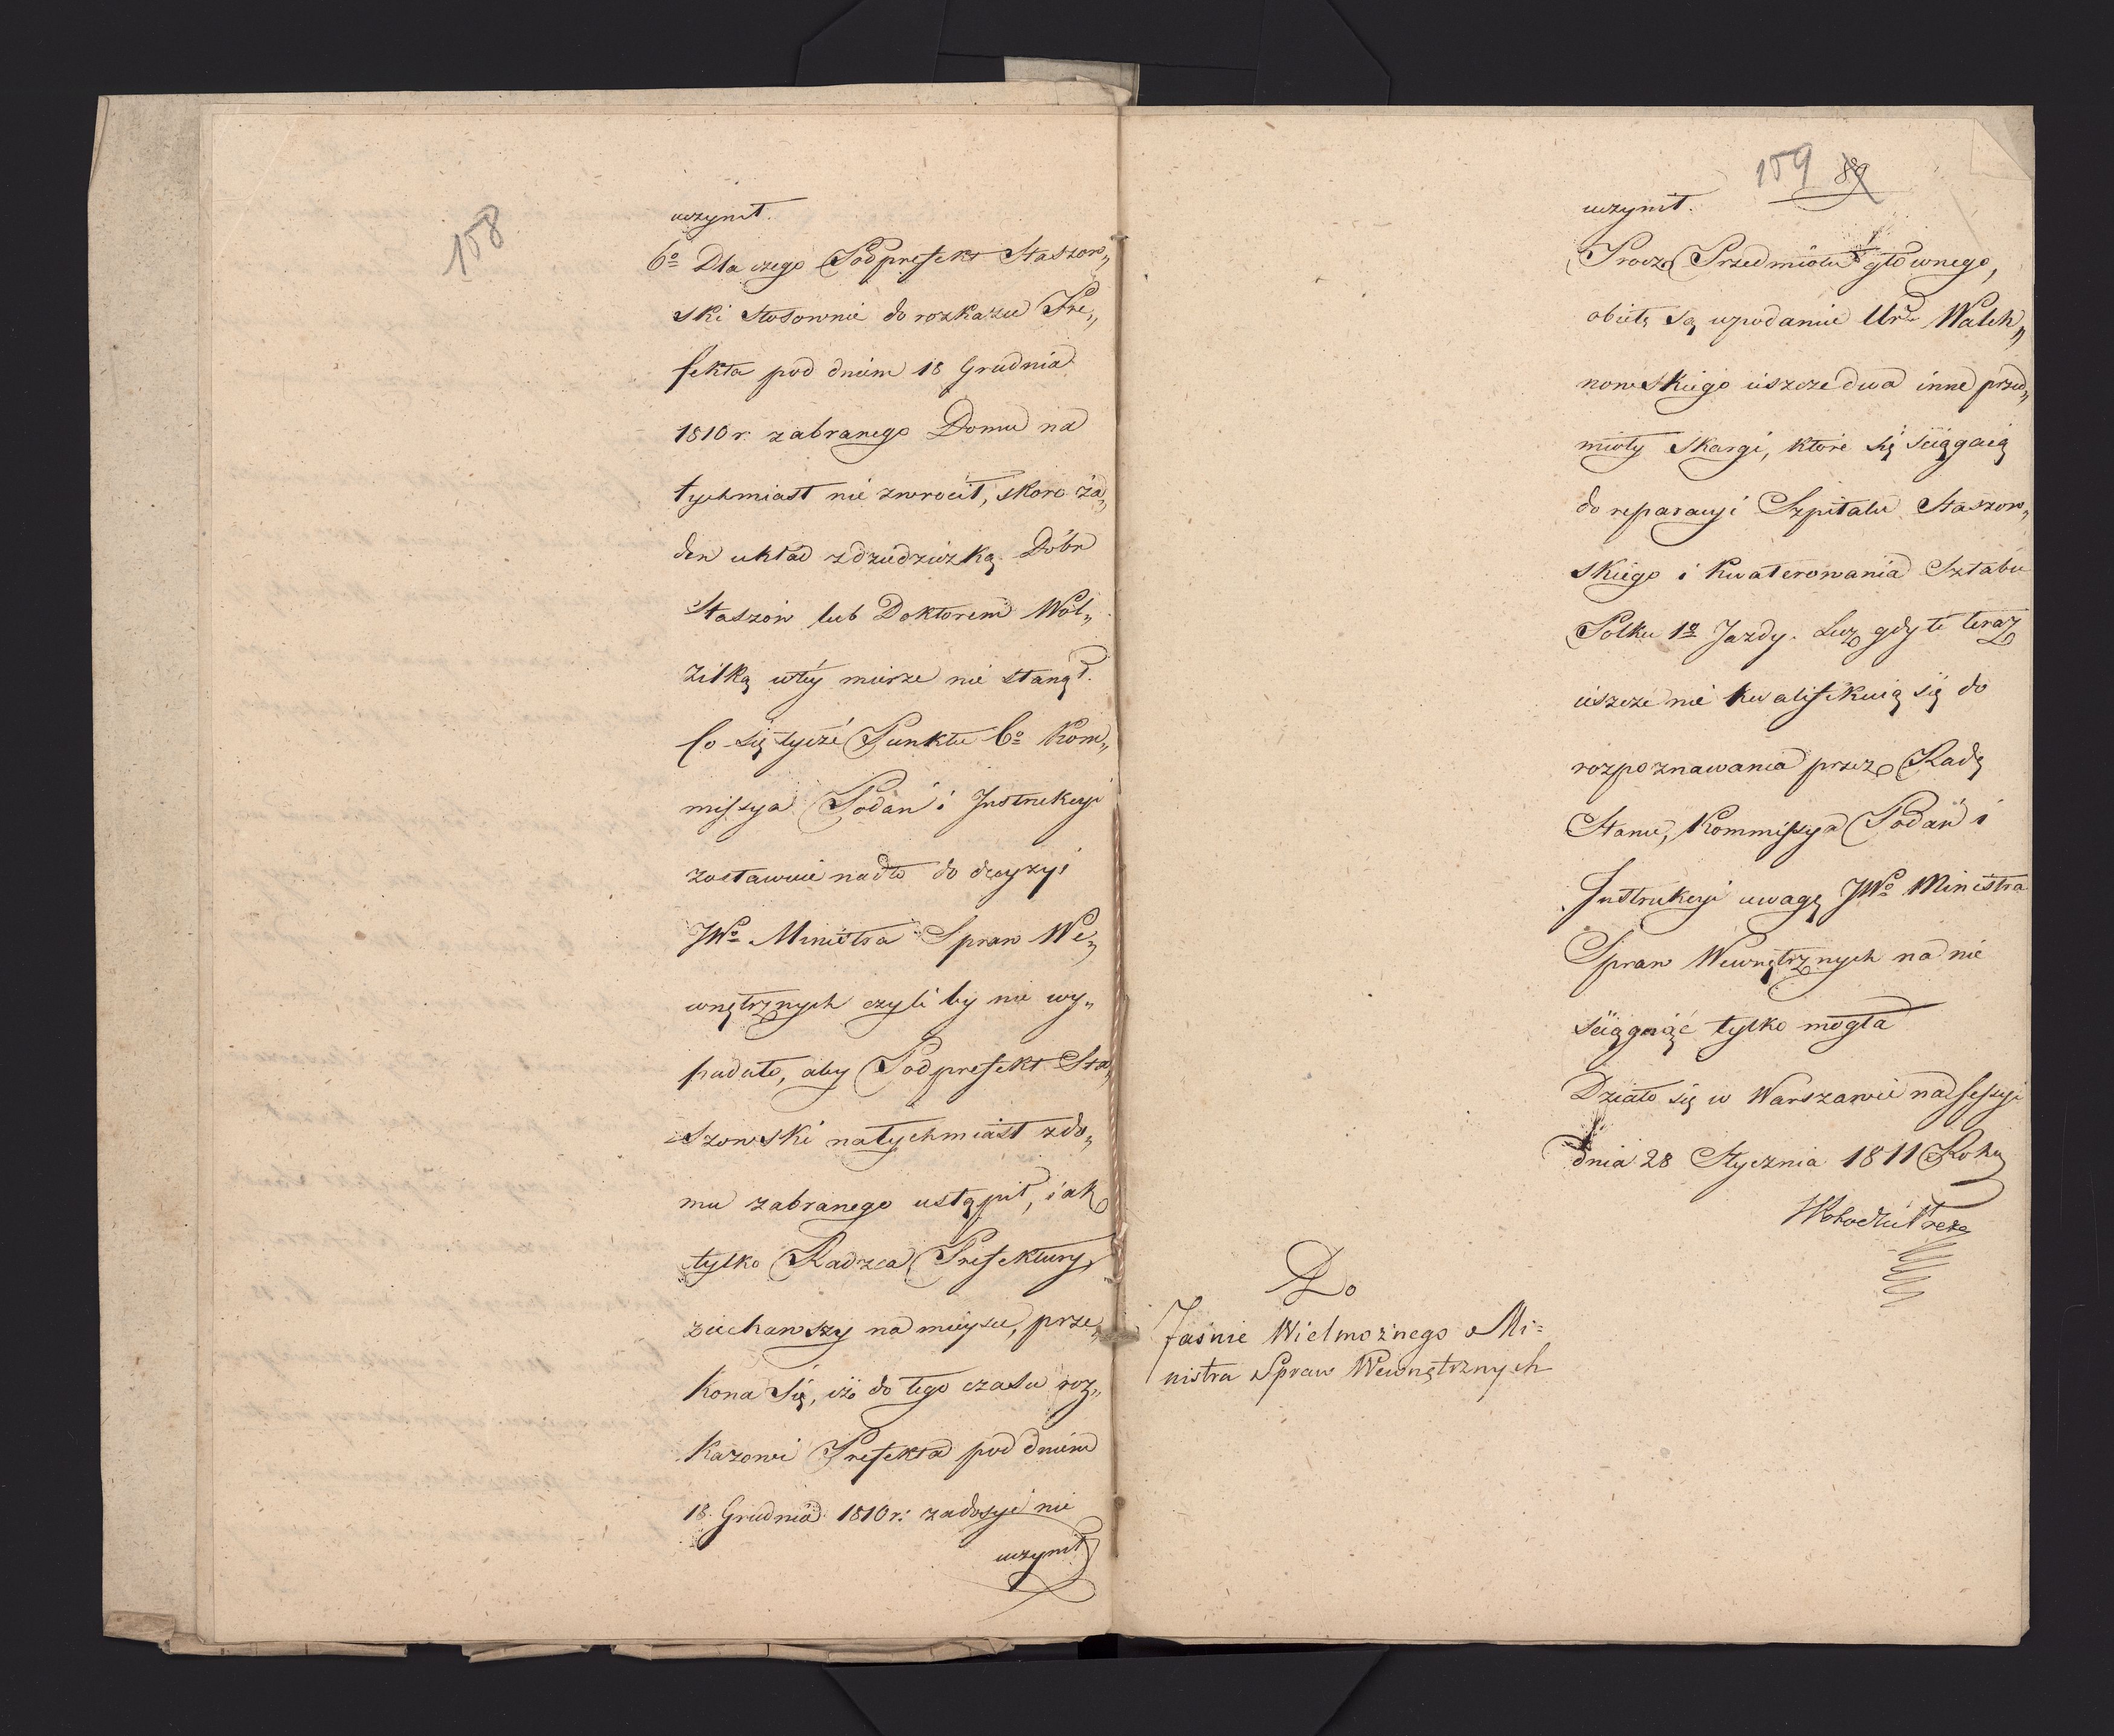 158
uczynił.
6o Dla czego Podprefekt Staszow„
ski stosownie do rozkazu Pre„
fekta pod dniem 18 Grudnia
1810 r. zabranego Domu na
tychmiast nie zwrocił, skoro ża„
den układ z dziedziczką Dóbr
Staszow lub Doktorem Wol„
zilką w tey mierze nie stanął.
Co się tycze Punktu 6o Kom„
missya Podań i Instrukcyi
zostawuie nadto do decyzyi
JWo Ministra Spraw We„
wnętrznych czyli by nie wy„
padało, aby Podprefekt Sta„
szowski natychmiast z do„
mu zabranego ustąpił, iak
tylko Radzca Prefektury
ziechawszy na mieysce, prze„
kona się, iż do tego czasu roz„
kazowi Prefekta pod dniem
18 Grudnia 1810 r: zadosyć nie
uczynił
159 89
uczynił.
Procz Przedmiotu głównego,
obięte są w podaniu Ur. Walch„
nowskiego ieszcze dwa inne przed„
mioty skargi, ktore się ściągaią
do reparacyi Szpitalu Staszow„
skiego i kwaterowania Sztabu
Polku 1o Jazdy. Lecz gdy te teraz
ieszcze nie kwalifikuią się do
rozpoznawania przez Radę
Stanu, Kommissya Podań i
Instrukcyi uwagę JWo Ministra
Spraw Wewnętrznych na nie
ściągnąć tylko mogła
Działo się w Warszawie na sessyi
dnia 28 Stycznia 1811 Roku
Do
Jaśnie Wielmożnego Mi=
nistra Spraw Wewnętrznych